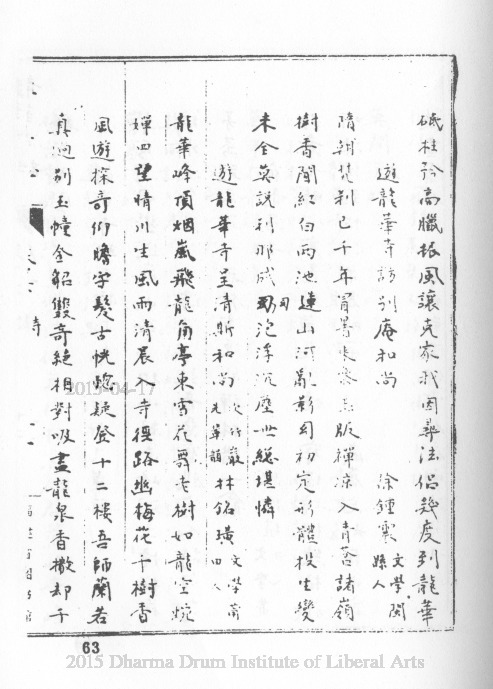 砥柱矜高臘振風讓克家我因尋法侶幾度到龍華
遊龍華寺訪別庵和尚 徐鍾震 文學閩縣人
隋朝梵剎已千年冒暑來 禪凉入青蒼諸嶺
樹香聞紅白兩池蓮山河亂影 初定形體投生變
未全莫說利那成 泡浮沉塵世總堪憐
遊龍華寺呈清斯和尚 次竹巖先輩韻 林銘璜 文學莆田人
龍華峰頂烟嵐飛龍角亭東雪花舞老樹如龍空蜿
蟬四望晴川生風雨清晨入寺徑路幽梅花千樹香
風遊探奇仰瞻字髮古恍惚疑登十二樓吾師蘭若
真迥別玉幢金 雙奇絕相對吸盡龍泉香撒却千
詩
福建省圖書館
63
2013-04-17
2015 Dharma Drum Institute of Liberal Arts